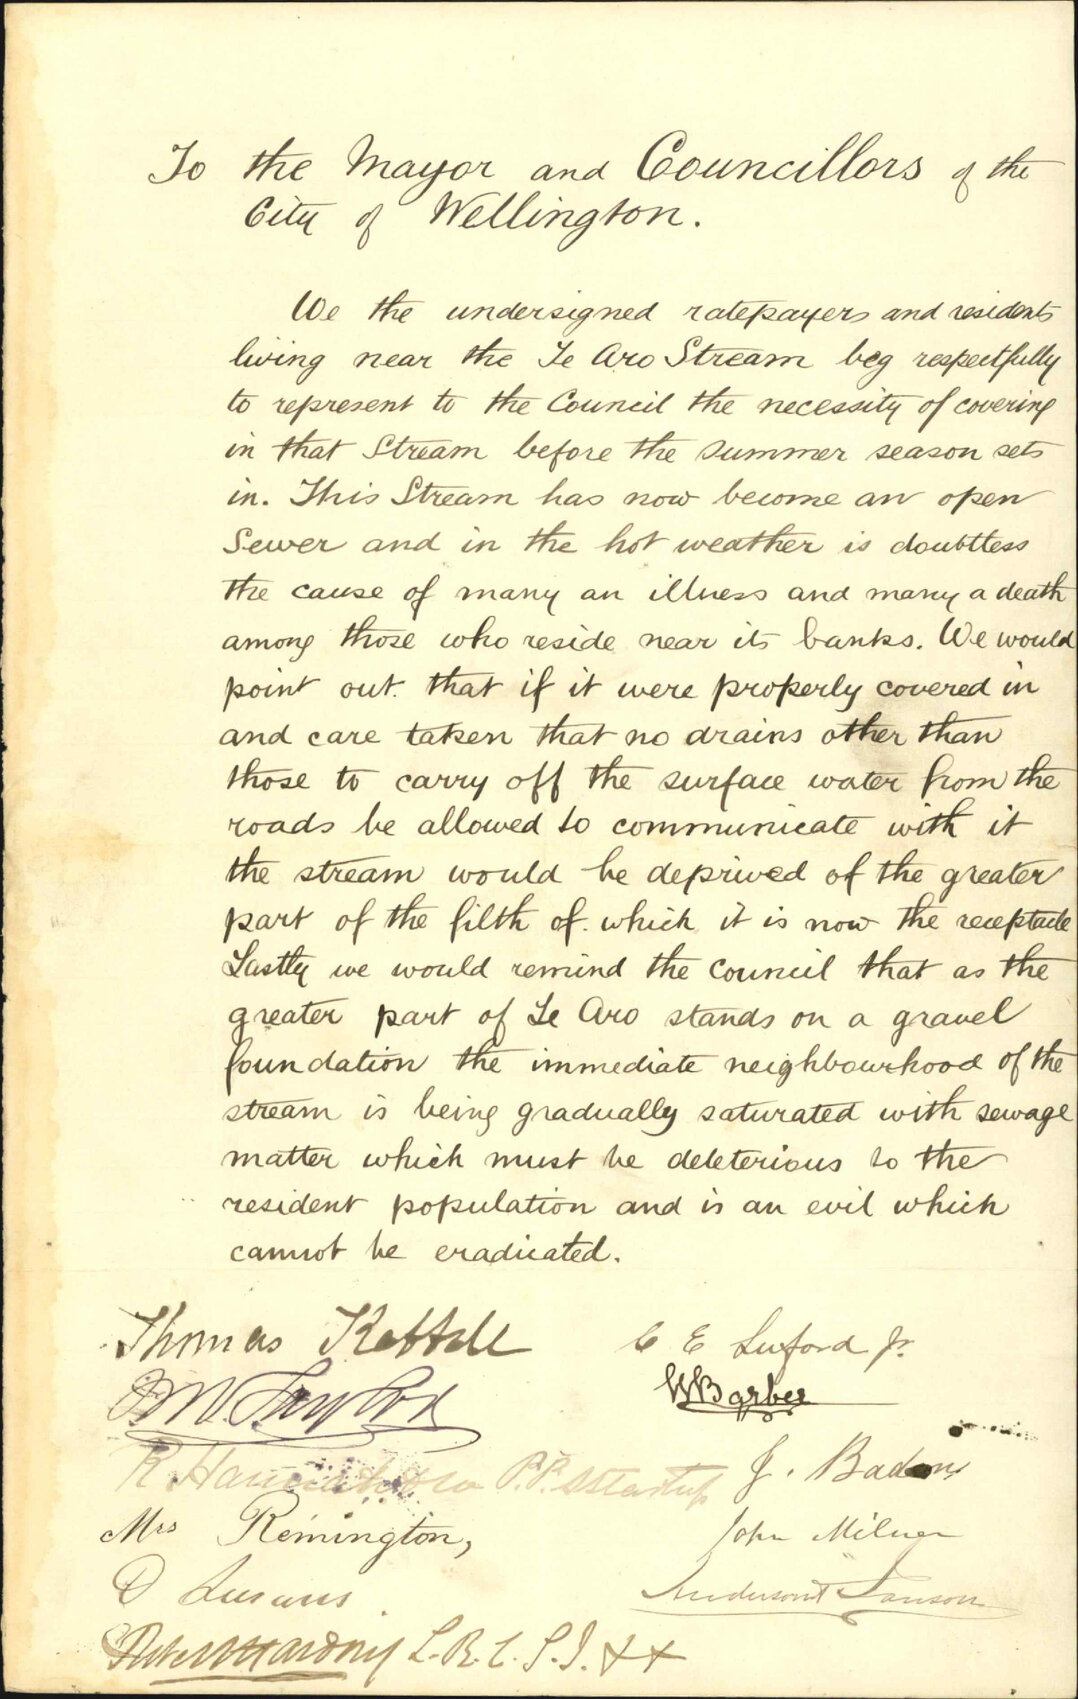 To the Mayor and Councillors of the
City of Wellington.
We the undersigned ratepayers and residents
living near the Te Aro Stream beg respectfully
to represent to the Council the necessity of covering
in that Stream before the summer season sets
in. This Stream has now become an open
Sewer and in the hot weather is doubtless
the cause of many an illness and many a death
among those who reside near its banks. We would
point out that if it were properly covered in
and care taken that no drains other than
those to carry off the surface water from the
roads be allowed to communicate with it
the stream would be deprived of the greater
part of the filth of which it is now the receptacle
Lastly we would remind the Council that as the
greater part of Te Aro stands on a gravel
foundation the immediate neighbourhood of the
stream is being gradually saturated with sewage
matter which must be deleterious to the
resident population and is an evil which
cannot be eradicated.
Thomas
C E Luxford Jr.
W Barber
R. P.P.
J.
Mrs Remington,
John Milner
D
L. R. C. S. I.